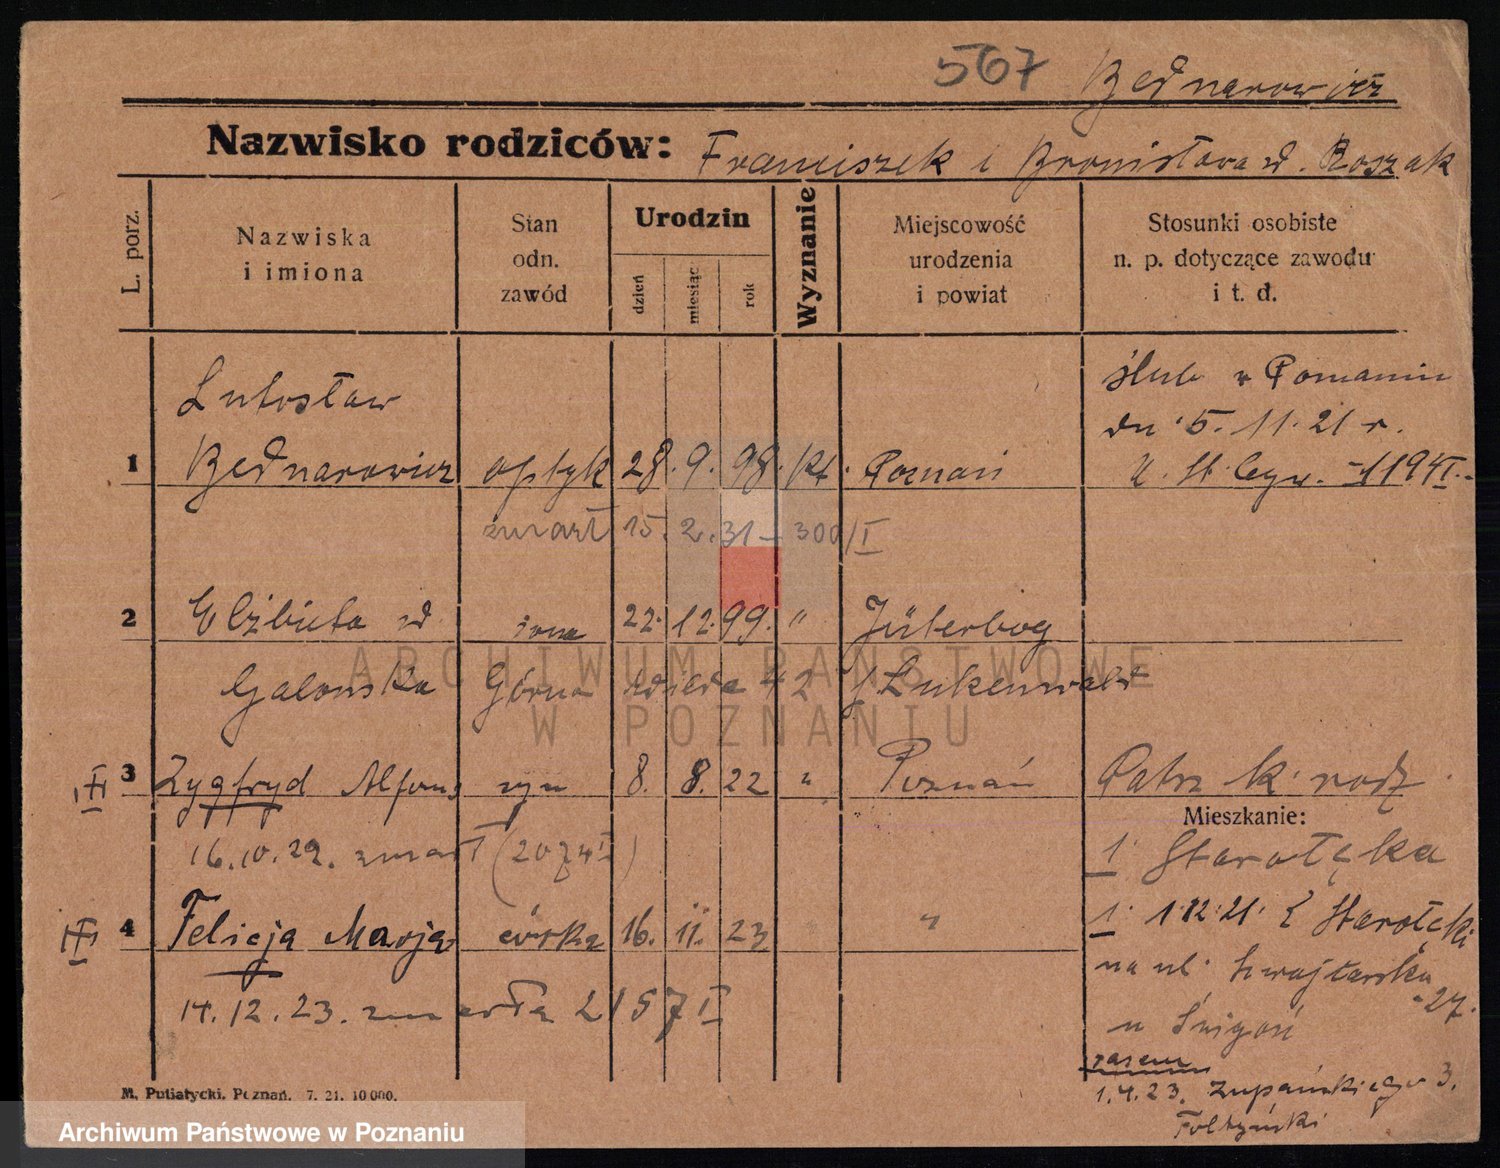 567 Bednarowicz
Nazwisko rodziców: Franciszek i Bronisława zd. Roszak
L. porz.
Nazwiska i imiona
Stan odn. zawód
Urodzin
dzień
miesiąc
rok
Wyznanie
Miejscowość urodzenia i powiat
Stosunki osobiste n. p. dotyczące zawodu i t. d.
Lutosław
ślub w Poznaniu
dn. 5. 11. 21 r.
1 Bednarowicz optyk 28. 9. 98. kt. Poznań
zmarł 15. 2. 31 - 300/I
2 Elżbieta zd. żona 22. 12. 99. " Jüterbog
Galonska Górna 42 / Lukenwald
ARCHIWUM PAŃSTWOWE
W POZNANIU
3 Zygfryd Alfons syn 8. 8. 22 " Poznań
Mieszkanie:
16.10.22. zmarł (2074I)
1. Starołęka
4 Felicja Marja córka 16. 11. 23 " "
1. 1.12.21. Z Starołęki
na ul.
27.
14.12.23. zmarła 2157 I
u
razem
1.4.23. Zupańskiego 3.
M. Putiatycki. Poznań. 7. 21. 10 000.
Archiwum Państwowe w Poznaniu